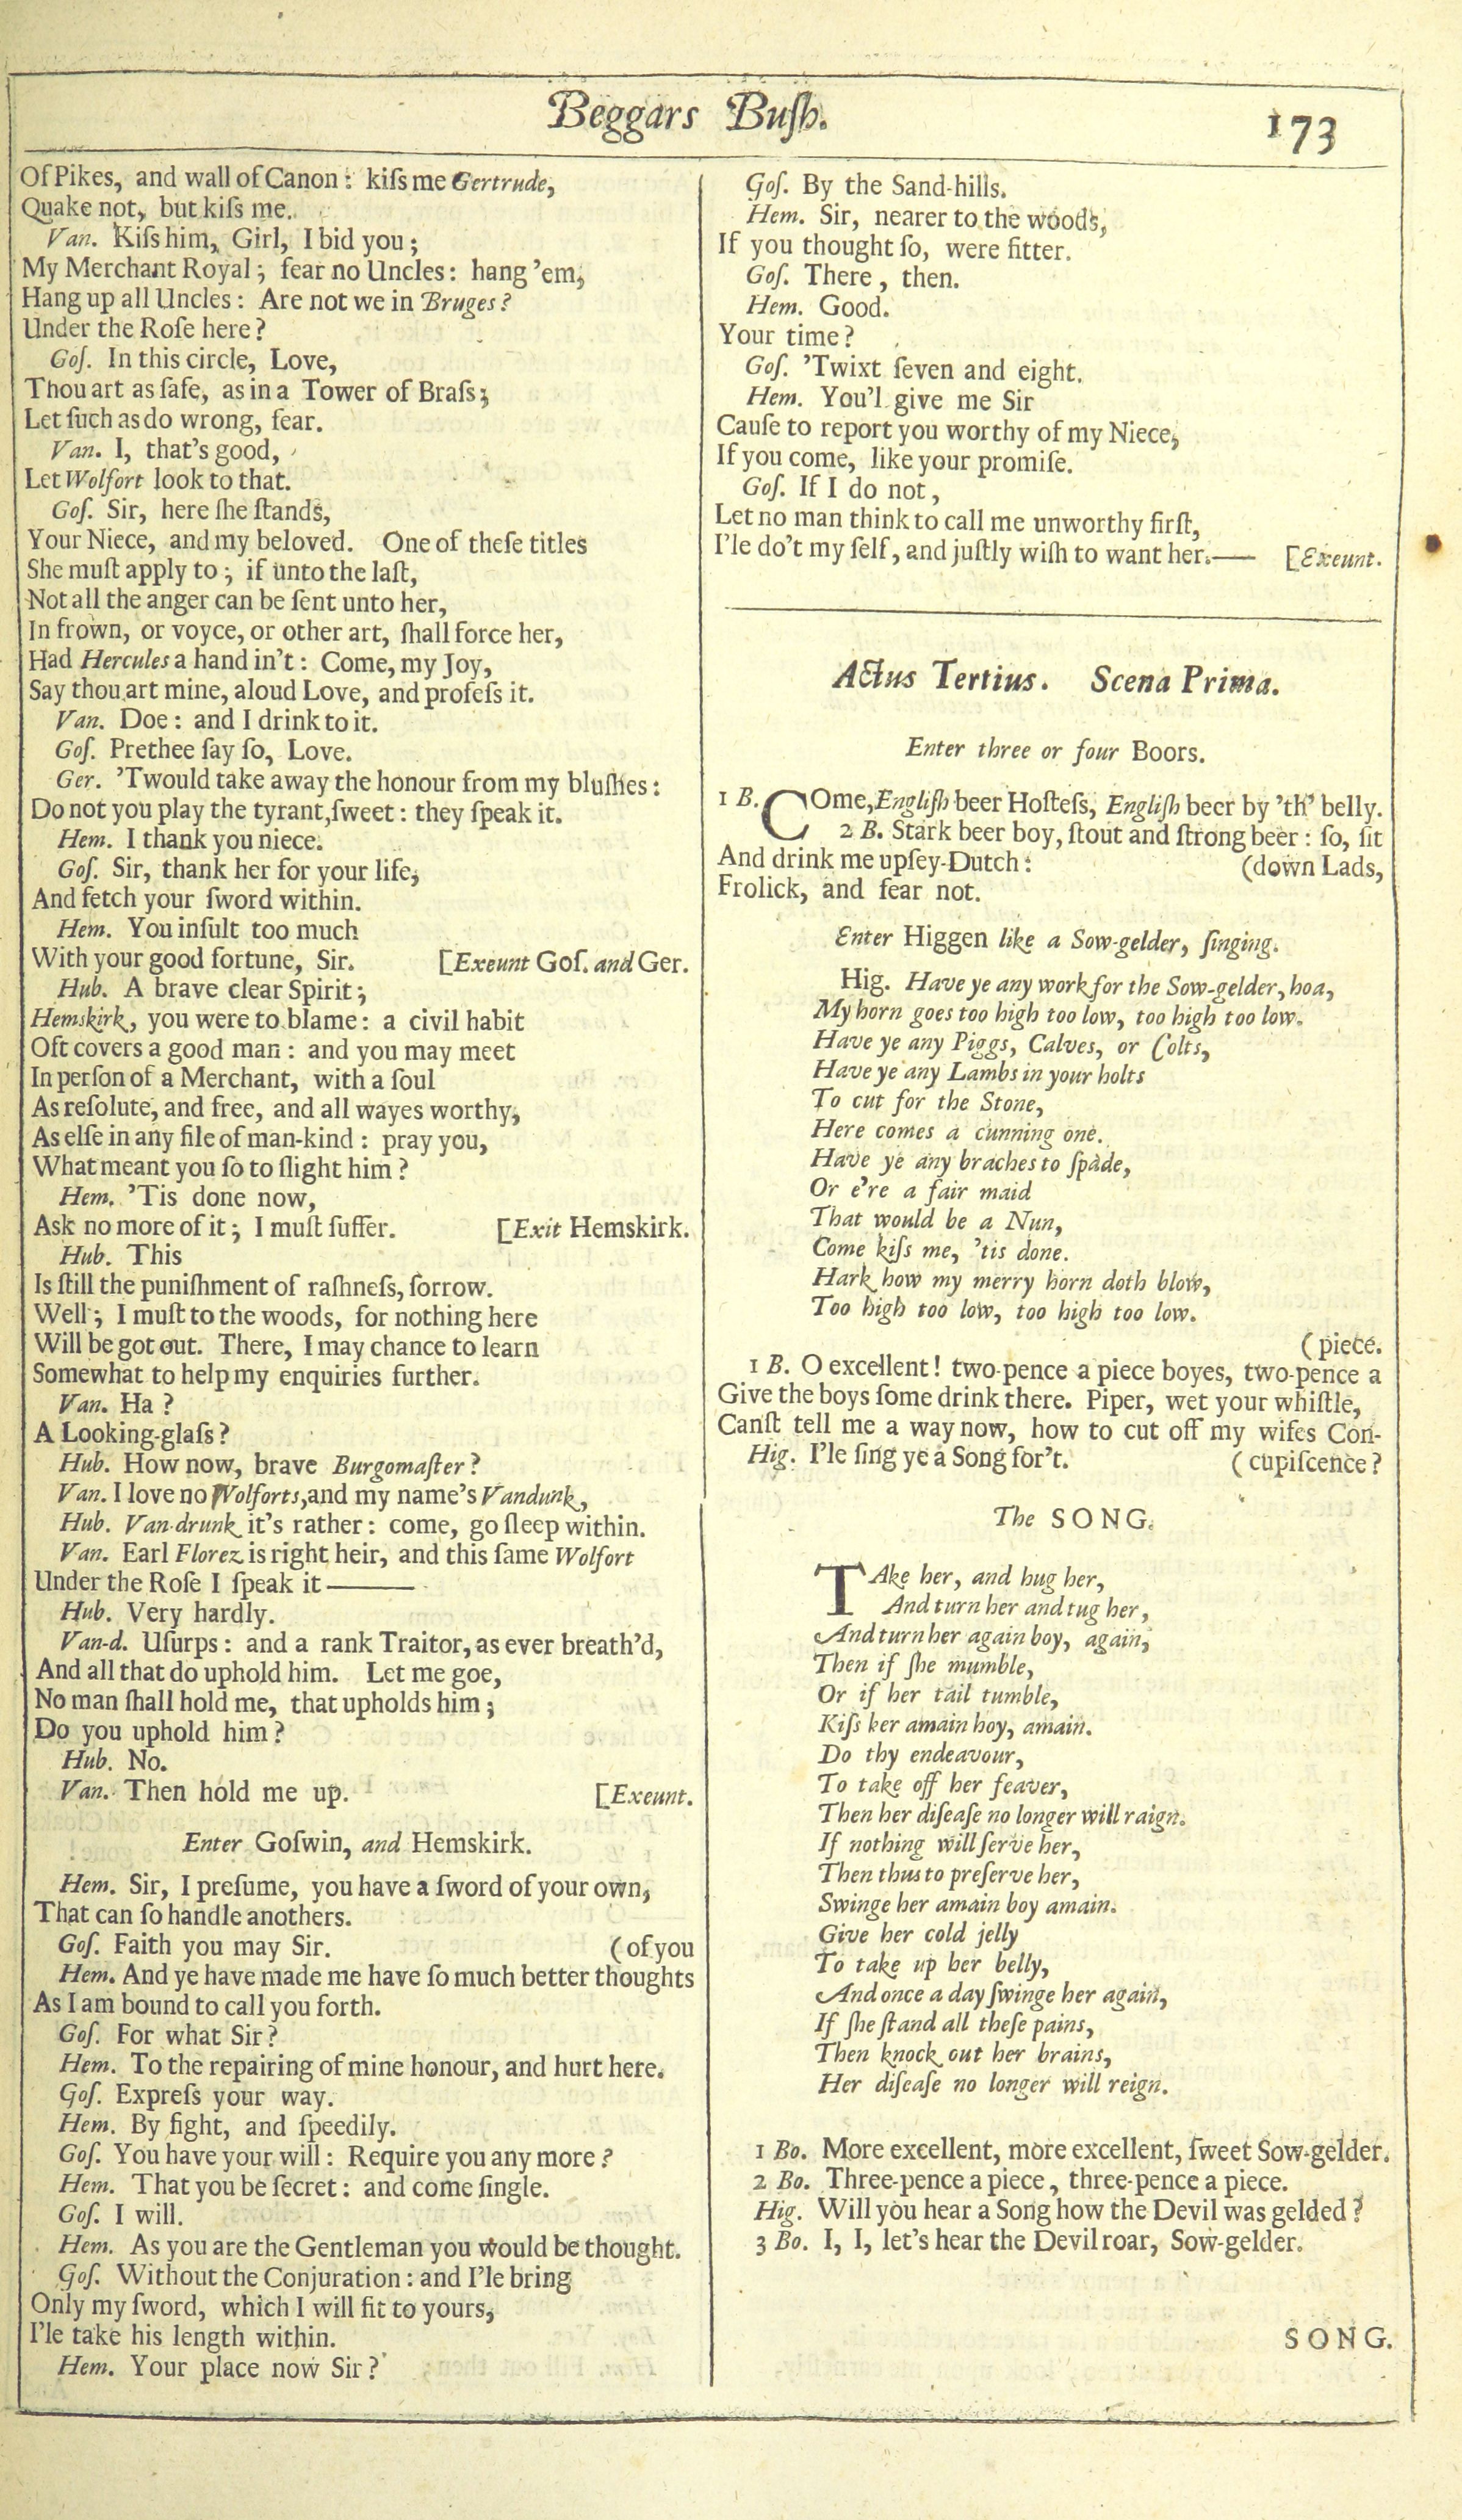 Beggars Buſh.
173
Of Pikes, and wall of Canon: kiſs me Gertrude,
Quake not, but kiſs me.
Van. Kiſs him, Girl, I bid you;
My Merchant Royal; fear no Uncles: hang 'em,
Hang up all Uncles: Are not we in Bruges?
Under the Roſe here?
Goſ. In this circle, Love,
Thou art as ſafe, as in a Tower of Braſs;
Let ſuch as do wrong, fear.
Van. I, that's good,
Let Wolfort look to that.
Goſ. Sir, here ſhe ſtands,
Your Niece, and my beloved. One of theſe titles
She muſt apply to; if unto the laſt,
Not all the anger can be ſent unto her,
In frown, or voyce, or other art, ſhall force her,
Had Hercules a hand in't: Come, my Joy,
Say thou art mine, aloud Love, and profeſs it.
Van. Doe: and I drink to it.
Goſ. Prethee ſay ſo, Love.
Ger. 'Twould take away the honour from my bluſhes:
Do not you play the tyrant, ſweet: they ſpeak it.
Hem. I thank you niece.
Goſ. Sir, thank her for your life,
And fetch your ſword within.
Hem. You inſult too much
With your good fortune, Sir. [Exeunt Goſ. and Ger.
Hub. A brave clear Spirit;
Hemskirk, you were to blame: a civil habit
Oft covers a good man: and you may meet
In perſon of a Merchant, with a ſoul
As reſolute, and free, and all wayes worthy,
As elſe in any file of man-kind: pray you,
What meant you ſo to ſlight him?
Hem. 'Tis done now,
Ask no more of it; I muſt ſuffer. [Exit Hemskirk.
Hub. This
Is ſtill the puniſhment of raſhneſs, ſorrow.
Well; I muſt to the woods, for nothing here
Will be got out. There, I may chance to learn
Somewhat to help my enquiries further.
Van. Ha?
A Looking-glaſs?
Hub. How now, brave Burgomaſter?
Van. I love no Wolforts, and my name's Vandunk,
Hub. Van-drunk it's rather: come, go ſleep within.
Van. Earl Florez is right heir, and this ſame Wolfort
Under the Roſe I ſpeak it———
Hub. Very hardly.
Van-d. Uſurps: and a rank Traitor, as ever breath'd,
And all that do uphold him. Let me goe,
No man ſhall hold me, that upholds him;
Do you uphold him?
Hub. No.
Van. Then hold me up. [Exeunt.
Enter Goſwin, and Hemskirk.
Hem. Sir, I preſume, you have a ſword of your own,
That can ſo handle anothers.
Goſ. Faith you may Sir. (of you
Hem. And ye have made me have ſo much better thoughts
As I am bound to call you forth.
Goſ. For what Sir?
Hem. To the repairing of mine honour, and hurt here.
Goſ. Expreſs your way.
Hem. By fight, and ſpeedily.
Goſ. You have your will: Require you any more?
Hem. That you be ſecret: and come ſingle.
Goſ. I will.
Hem. As you are the Gentleman you would be thought.
Goſ. Without the Conjuration: and I'le bring
Only my ſword, which I will fit to yours,
I'le take his length within.
Hem. Your place now Sir?
Goſ. By the Sand-hills.
Hem. Sir, nearer to the woods,
If you thought ſo, were fitter.
Goſ. There, then.
Hem. Good.
Your time?
Goſ. 'Twixt ſeven and eight.
Hem. You'l give me Sir
Cauſe to report you worthy of my Niece,
If you come, like your promiſe.
Goſ. If I do not,
Let no man think to call me unworthy firſt,
I'le do't my ſelf, and juſtly wiſh to want her.—— [Exeunt.
Actus Tertius. Scena Prima.
Enter three or four Boors.
1 B. COme, Engliſh beer Hoſteſs, Engliſh beer by 'th' belly.
2 B. Stark beer boy, ſtout and ſtrong beer: ſo, ſit
And drink me upſey-Dutch: (down Lads,
Frolick, and fear not.
Enter Higgen like a Sow-gelder, ſinging.
Hig. Have ye any work for the Sow-gelder, hoa,
My horn goes too high too low, too high too low.
Have ye any Piggs, Calves, or Colts,
Have ye any Lambs in your holts
To cut for the Stone,
Here comes a cunning one.
Have ye any braches to ſpade,
Or e're a fair maid
That would be a Nun,
Come kiſs me, 'tis done.
Hark how my merry horn doth blow,
Too high too low, too high too low.
(piece.
1 B. O excellent! two-pence a piece boyes, two-pence a
Give the boys ſome drink there. Piper, wet your whiſtle,
Canſt tell me a way now, how to cut off my wifes Con-
Hig. I'le ſing ye a Song for't. (cupiſcence?
The SONG.
TAke her, and hug her,
And turn her and tug her,
And turn her again boy, again,
Then if ſhe mumble,
Or if her tail tumble,
Kiſs her amain boy, amain.
Do thy endeavour,
To take off her feaver,
Then her diſeaſe no longer will raign.
If nothing will ſerve her,
Then thus to preſerve her,
Swinge her amain boy amain.
Give her cold jelly
To take up her belly,
And once a day ſwinge her again,
If ſhe ſtand all theſe pains,
Then knock out her brains,
Her diſeaſe no longer will reign.
1 Bo. More excellent, more excellent, ſweet Sow-gelder.
2 Bo. Three-pence a piece, three-pence a piece.
Hig. Will you hear a Song how the Devil was gelded?
3 Bo. I, I, let's hear the Devil roar, Sow-gelder.
SONG.